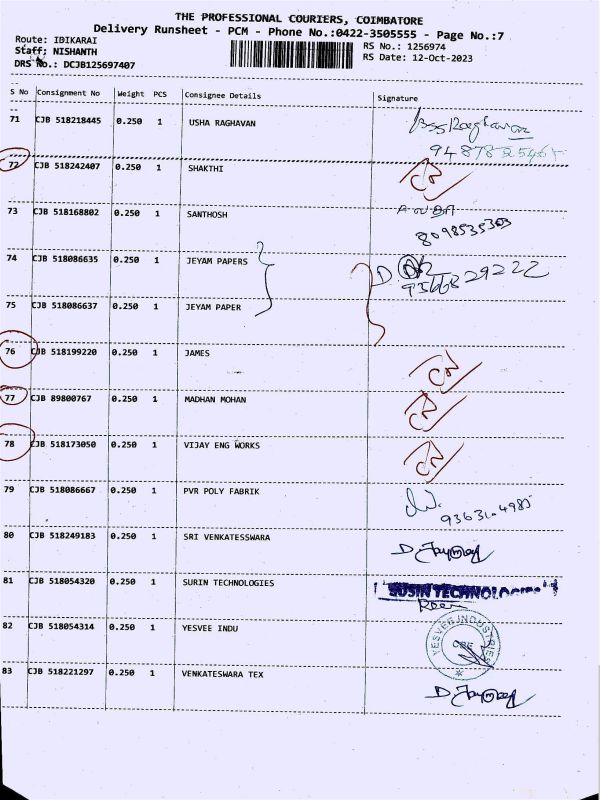 THE PROFESSIONAL COURIERS, COIMBATORE
Delivery Runsheet - PCM - Phone No.:0422-3505555 - Page No.:7
Route: IDIKARAI
Staff: NISHANTH
DRS No.: DCJB125697407
RS No.: 1256974
RS Date: 12-Oct-2023
S No Consignment No Weight PCS Consignee Details Signature
71 CJB 518218445 0.250 1 USHA RAGHAVAN
72 CJB 518242407 0.250 1 SHAKTHI
73 CJB 518168802 0.250 1 SANTHOSH
8098535303
74 CJB 518086635 0.250 1 JEYAM PAPERS
75 CJB 518086637 0.250 1 JEYAM PAPER
76 CJB 518199220 0.250 1 JAMES
77 CJB 89800767 0.250 1 MADHAN MOHAN
78 CJB 518173050 0.250 1 VIJAY ENG WORKS
79 CJB 518086667 0.250 1 PVR POLY FABRIK
80 CJB 518249183 0.250 1 SRI VENKATESSWARA
81 CJB 518054320 0.250 1 SURIN TECHNOLOGIES
SUSIN TECHNOLOGIES
82 CJB 518054314 0.250 1 YESVEE INDU
YESVEE INDUSTRIES
CBE
83 CJB 518221297 0.250 1 VENKATESWARA TEX